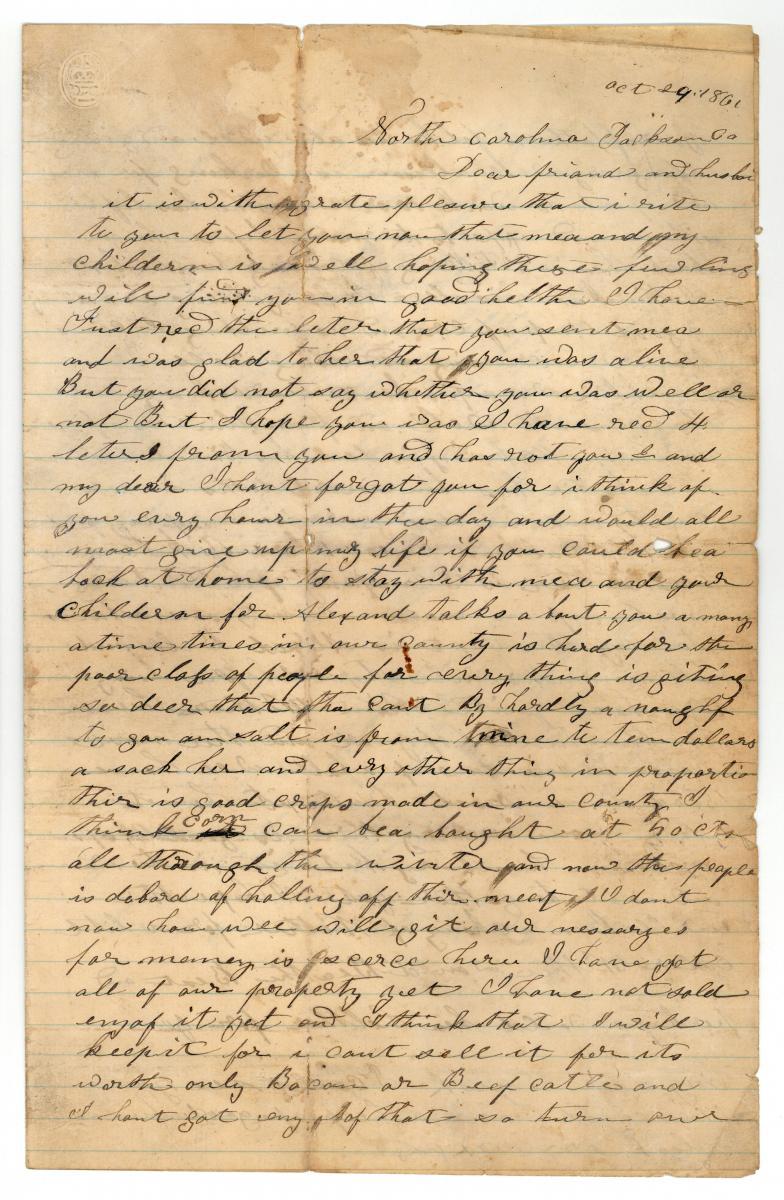 oct 29. 1861
North carolina Jackson Co
Dear friand and husban
it is with grate plesure that i rite
to you to let you now that mea and my
childern is well hoping these few lines
will find you in good helth I have
Just recd the leter that you sent mea
and was glad to her that you was alive
But you did not say whether you was well or
not But I hope you was I have recd 4
leters from you and has rot you 2 and
my dear I hant forgot you for i think of
you every hour in the day and would all
most give up my life if you could bea
back at home to stay with mea and your
childern for Alexand talks about you a many
a time times in our county is hard for the
poor class of people for every thing is giting
so deer that tha cant By hardly a nought
to you am salt is from nine to tenn dollars
a sack her and evry other thing in proportio
thir is good crops made in our county I
think corn can bea bought at 50 cts
all through the winter and now the people
is dobard of halling off thir meet I dont
now how wee will git our nessaryes
for money is scerce here I have got
all of our property yet I have not sold
eny of it yet and I think that I will
keep it for i cant sell it for its
worth only Bacon or Beef catle and
I hant got eny of that so turn over